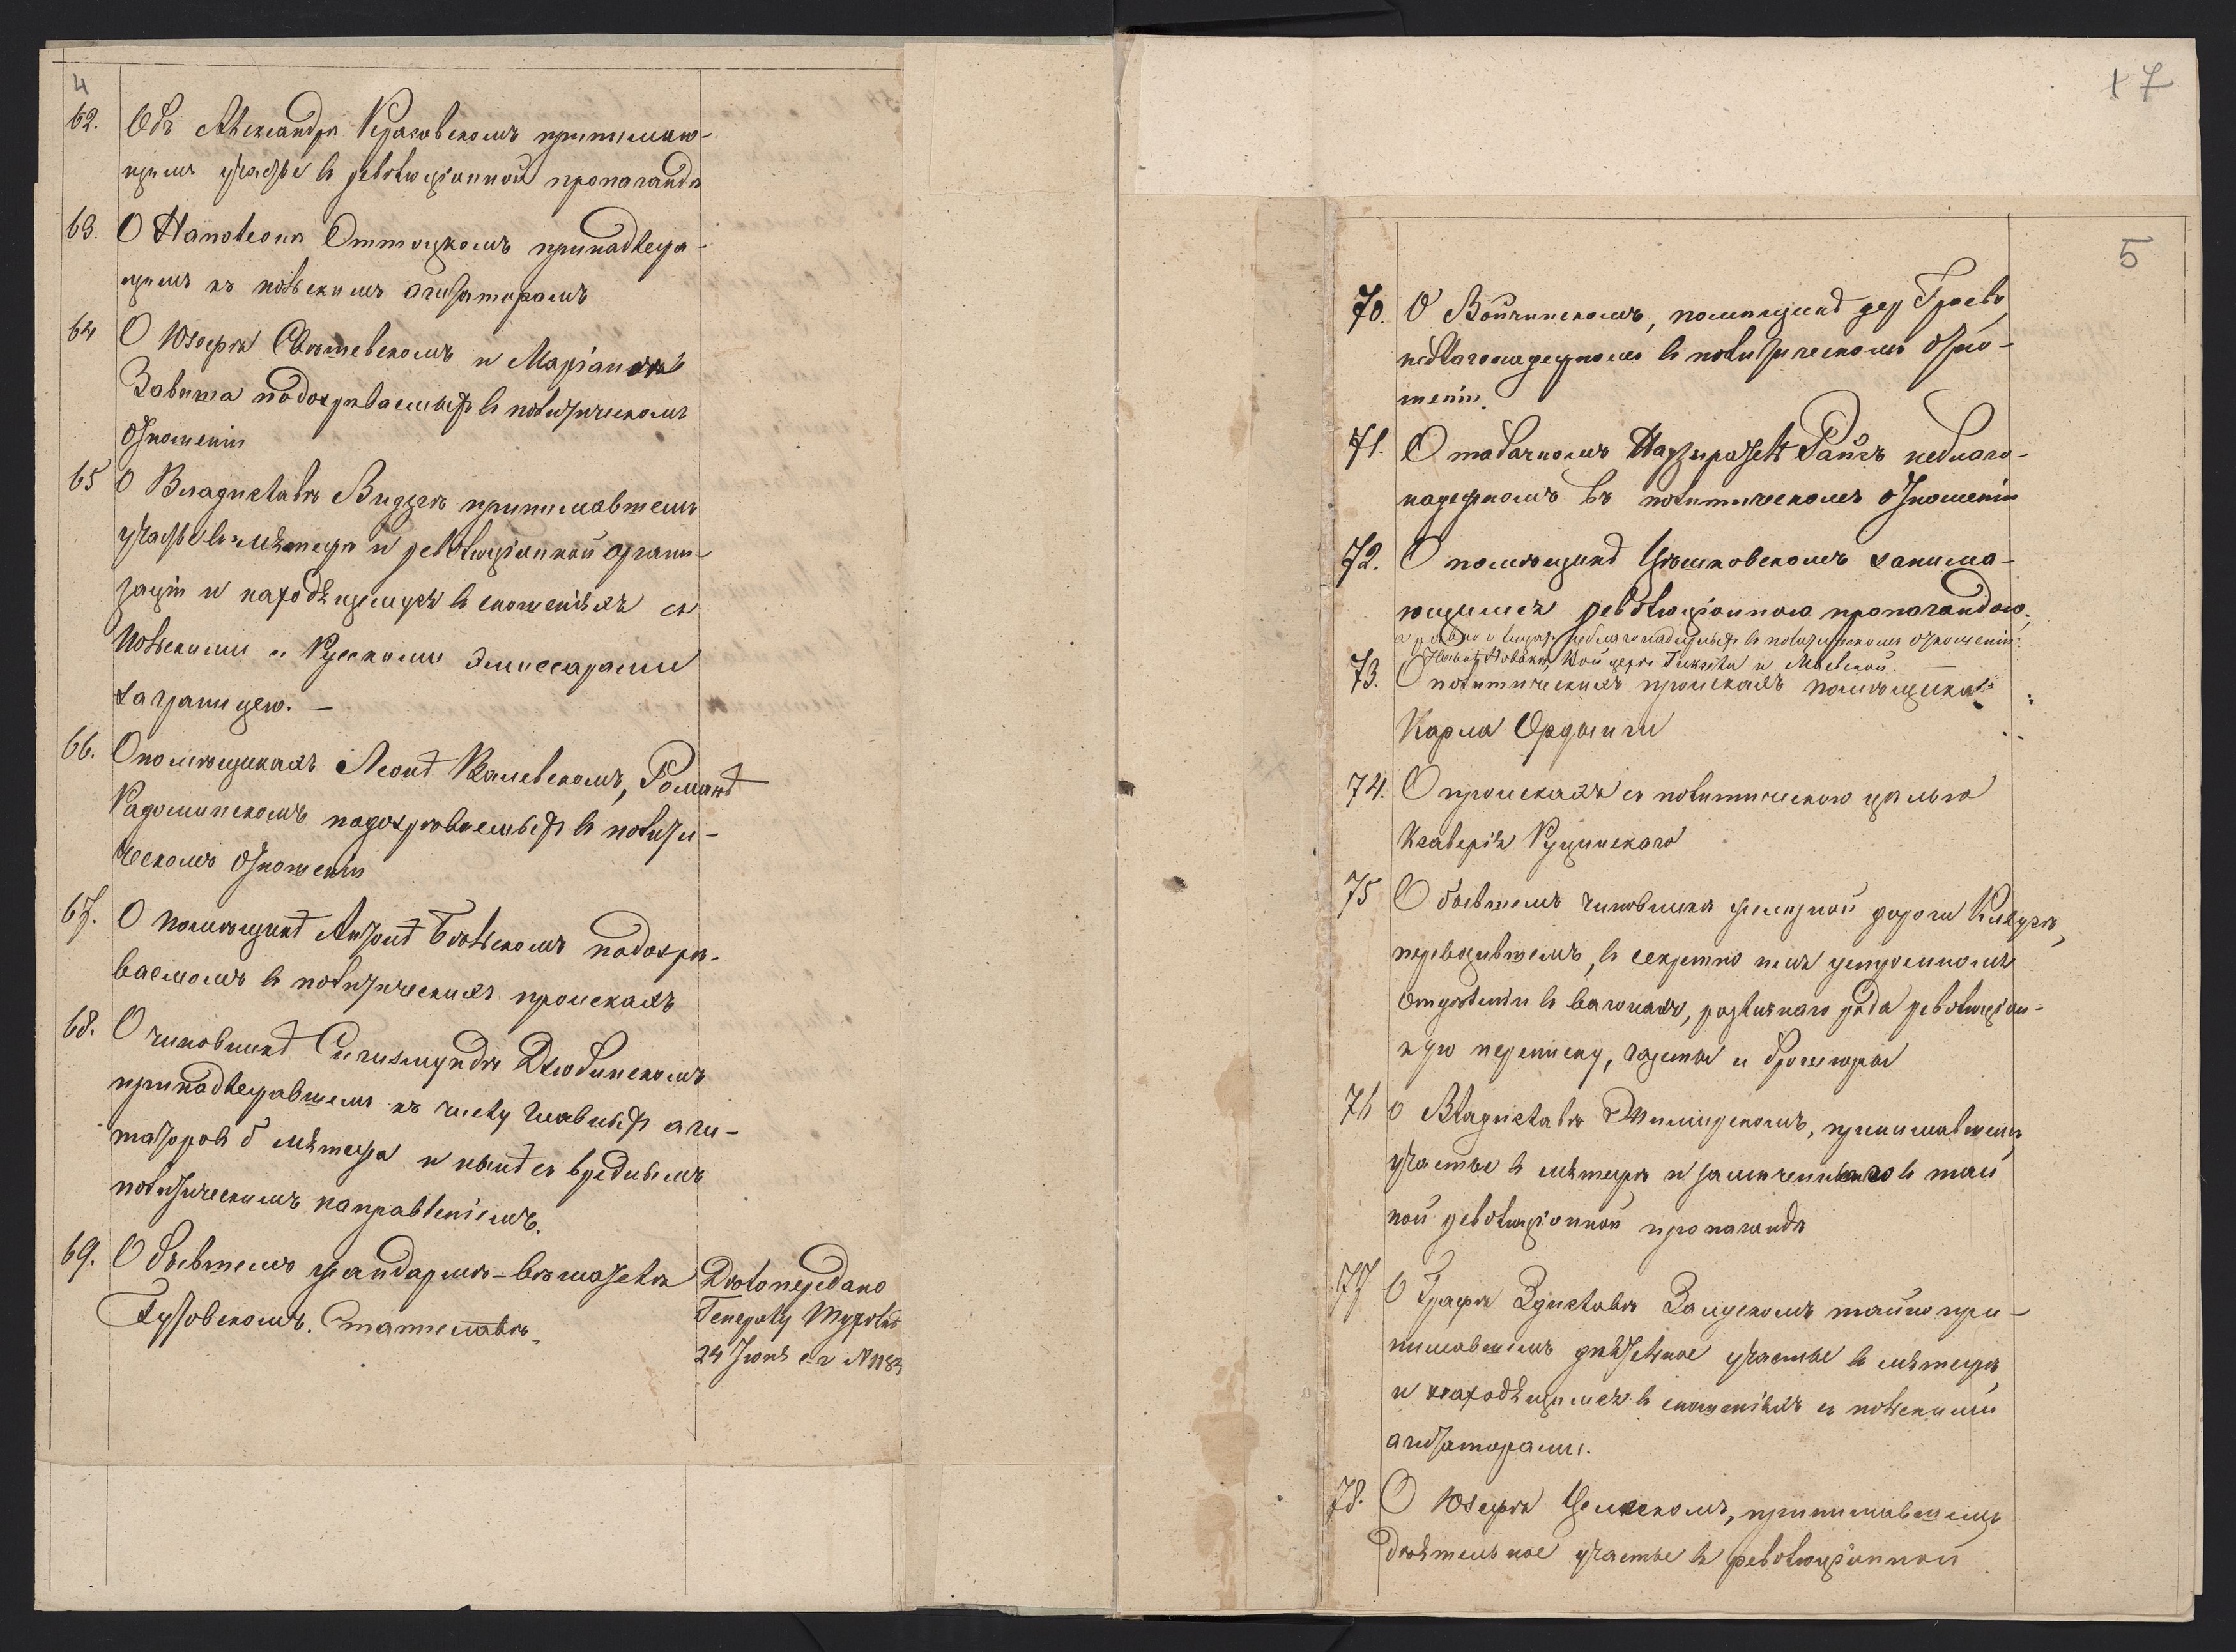 4
62. Объ Александрѣ Красовскомъ принимаю-
щимъ участье въ революціонной пропагандѣ
63. О Наполеонѣ Оттоцкомъ принадлежа-
щимъ къ польскимъ агитаторамъ
64 О Юзефѣ Свѣтлевскомъ и Маріанѣ
Завиша подозрѣваемыхъ въ политическомъ
отношеніи
65 О Владиславѣ принимавшемъ
участье въ мятежѣ и революціонной органи-
заціи и находящемуся въ сношеніяхъ съ
Польскими и Русскими Эмиссарами
заграницею. –
66. О помѣщикахъ Леонѣ Романѣ
Радоминскомъ подозрѣваемыхъ въ полити-
ческомъ отношеніи
67. О помѣщикѣ Антонѣ подозрѣ-
ваемомъ въ политическихъ проискахъ
68. О чиновникѣ Сигизмундѣ Длубинскомъ
принадлежавшемъ къ числу главныхъ аги-
таторовъ б. мятежа и нынѣ съ вреднымъ
политическимъ направленіемъ.
69. О бывшемъ жандармѣ-вѣшателѣ Дѣло передано
Гутовскомъ. Станиславѣ. Генералу
24 Іюня с. г. №
17
5
70. О Войчинскомъ, помѣщикѣ дер. Граево,
неблагонадежномъ въ политическомъ отно-
шеніи.
71. О табачномъ Надзирателѣ Райхъ неблаго-
надежномъ въ политическомъ отношеніи
72. О помѣщикѣ занима-
ющемся революціонною пропагандою,
а равно о лицахъ неблагонадежныхъ въ политическомъ отношеніи:
и
73. О политическихъ проискахъ помѣщика
Карла Ордынги
74. О проискахъ съ политическою цѣлью
Ксаверія Ружинскаго
75 О бывшемъ чиновникѣ желѣзной дороги
перевозившемъ, въ секретно имъ устроенномъ
отдѣленіи въ вагонахъ, различнаго рода революціон-
ную переписку, газеты и брошюры
76 О Владиславѣ принимавшемъ
участье въ мятежѣ и замѣченнаго въ тай
ной революціонной пропагандѣ
77 О Графѣ Здиславѣ Замускомъ тайно при-
нимавшемъ дѣятельное участье въ мятежѣ,
и находящимся въ сношеніяхъ съ польскими
агитаторами.
78. О Юзефѣ принимавшемъ
дѣятельное участье въ революціонной